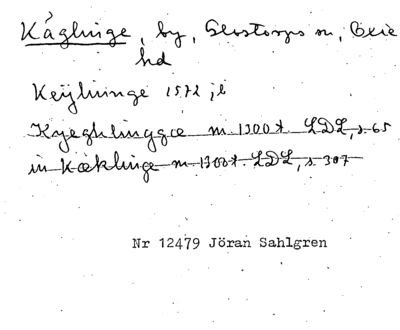 Kåglinge, by, Glostorps sn, Oxie
hd
Keÿlninge 1572 jb
Kyeghlinggæ m. 1300 t. LDL, s 65
in Kæklinge m 1300 t. LDL, s 307
Nr 12479 Jöran Sahlgren